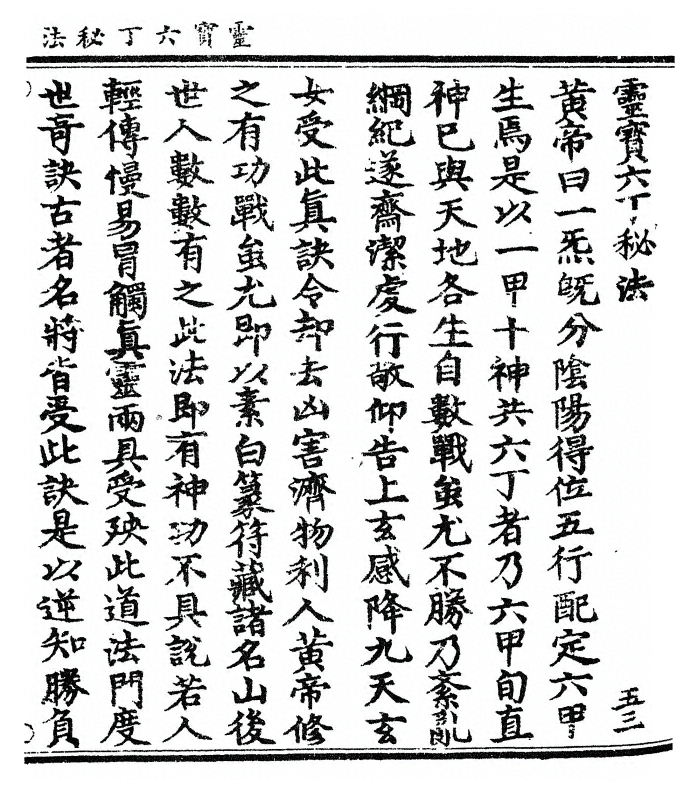 靈寶六丁秘法
靈寶六丁秘法
五三
黃帝曰一炁旣分陰陽得位五行配定六甲
生焉是以一甲十神共六丁者乃六甲旬直
神巳與天地各生自數戰蚩尤不勝乃紊亂
綱紀遂齋潔虔行敬仰告上玄感降九天玄
女受此眞訣令却去凶害濟物利人黃帝修
之有功戰蚩尤即以素白篆符藏諸名山後
世人數數有之此法即有神功不具說若人
輕傳慢易冐觸眞靈兩具受殃此道法門度
世奇訣古者名將皆受此訣是以逆知勝負